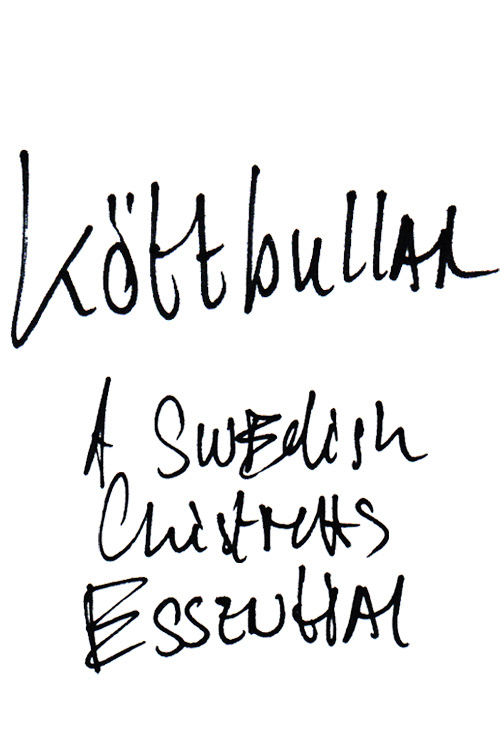 Köttbullar
A Swedish
Chistmas
Essential